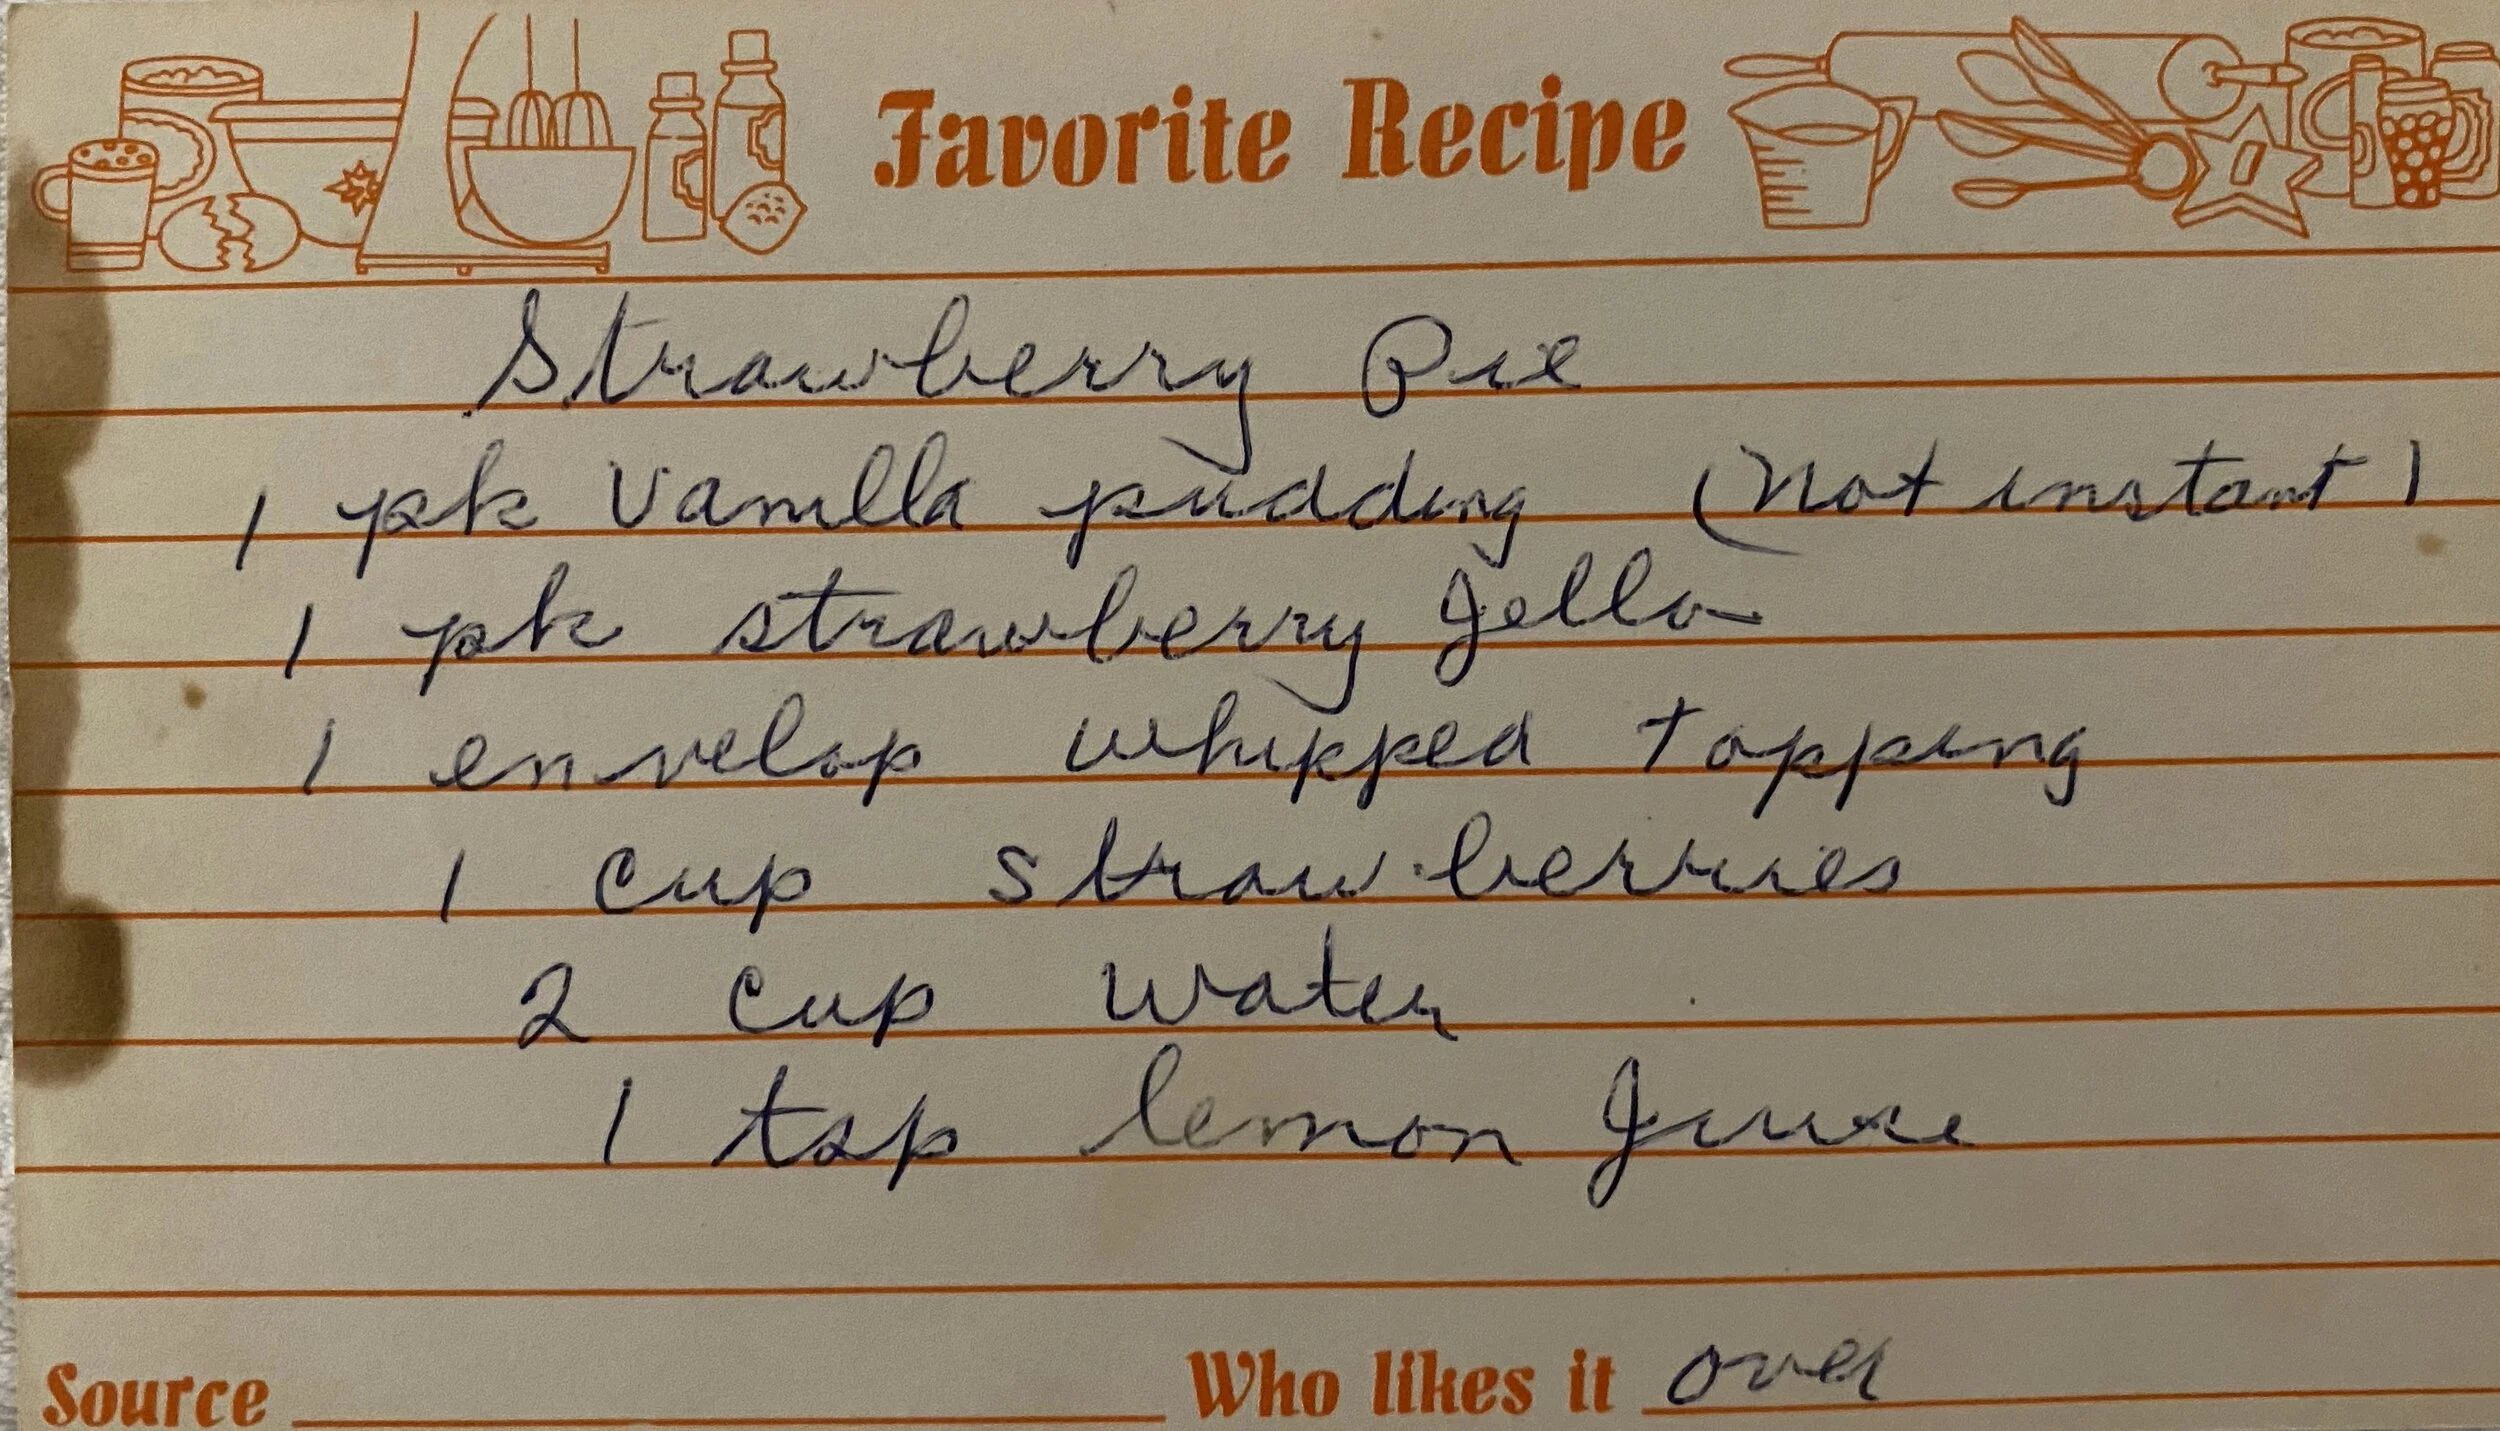 Favorite Recipe
Strawberry Pie
1 pk Vanilla pudding (Not instant)
1 pk strawberry Jello
1 envelop whipped topping
1 cup strawberries
2 cup water
1 tsp lemon Juice
Source Who likes it over